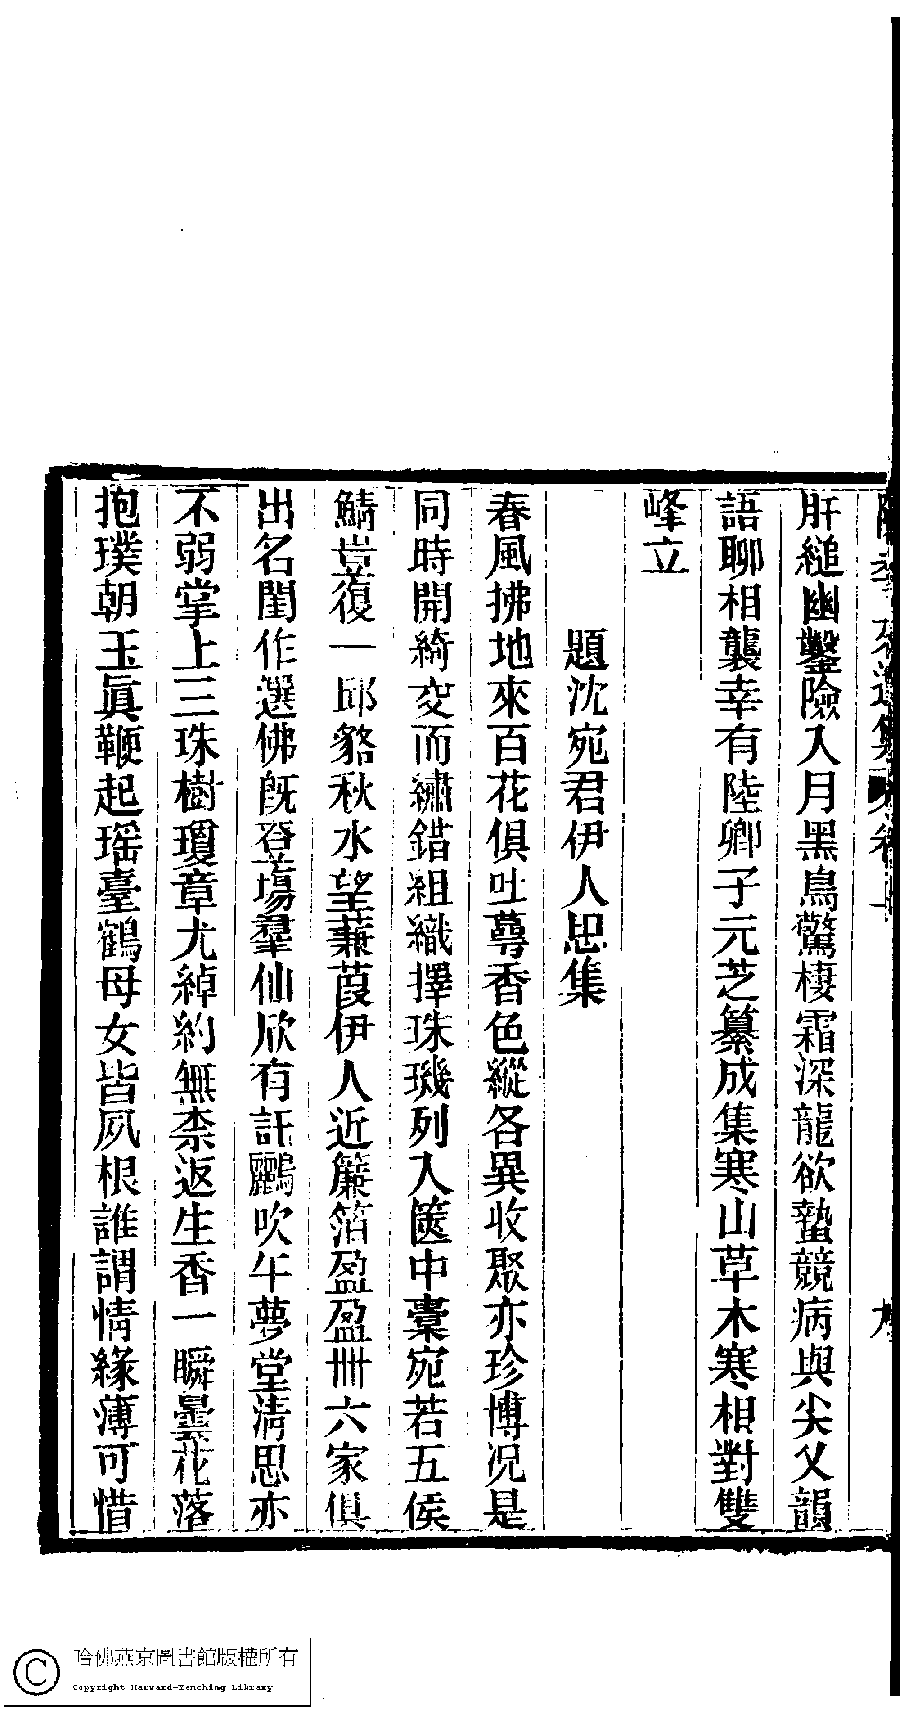 肝縋幽鑿險入月黑鳥驚棲霜深龍欲蟄競病與尖叉韻
語聊相襲幸有陸卿子元芝纂成集寒山草木寒相對雙
峰立
題沈宛君伊人思集
春風拂地來百花俱吐蕚香色縱各異收聚亦珍博况是
同時開綺交而繡錯組織擇珠璣列入篋中槖宛若五侯
鯖豈復一邱貉秋水望蒹葭伊人近簾箔盈盈卌六家俱
出名閨作選佛旣登塲羣仙欣有託鸝吹午夢堂清思亦
不弱掌上三珠樹瓊章尤綽約無柰返生香一瞬曇花落
抱璞朝玉眞鞭起瑶臺鶴母女皆夙根誰謂情緣薄可惜
哈佛燕京圖書館版權所有
Copyright Harvard-Yenching Library